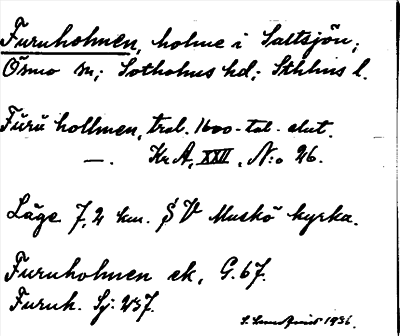 Furuholmen, holme i Saltsjön;
Ösmo sn; Sotholms hd; Sthlms l.
Furu hollmen, trol. 1600-tal. slut.
—. Kr. A, XXII, N:o 26.
Läge 7,2 km. S V Muskö kyrka.
Furuholmen ek, G. 67.
Furuh. Sj: 237.
1936.